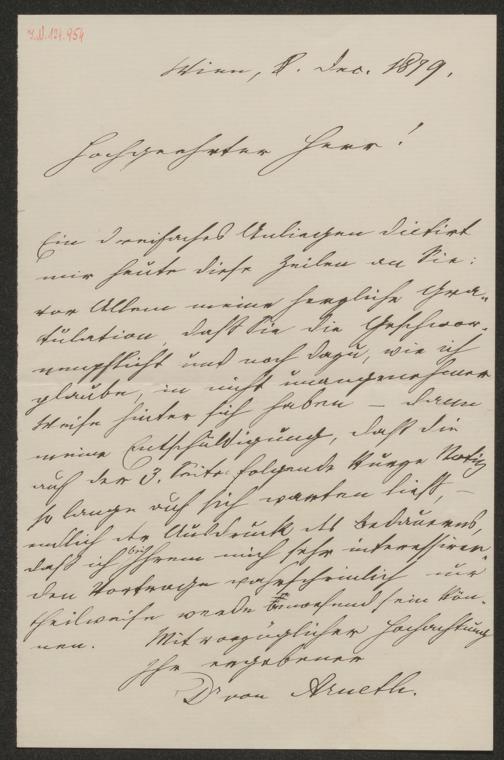 I.N. 124.954
Wien, 8. Dec. 1879.
Hochgeehrter Herr!
Ein dreifaches Anliegen dictirt
mir heute diese Zeilen an Sie:
vor Allem meine herzliche Gra-
tulation, daß Sie die Geschwor-
nenpflicht und noch dazu, wie ich
glaube, in nicht unangenehmer
Weise hinter sich haben – dann
meine Entschuldigung, daß die
auf der 3. Seite folgende kurze Notiz
so lange auf sich warten ließ, –
endlich der Ausdruck des Bedauerns,
daß ich bei Ihrem mich sehr interessiren-
den Vortrage wahrscheinlich nur
theilweise werde anwesend sein kön-
nen. Mit vorzüglicher Hochachtung
Ihr ergebener
Dr von Arneth.